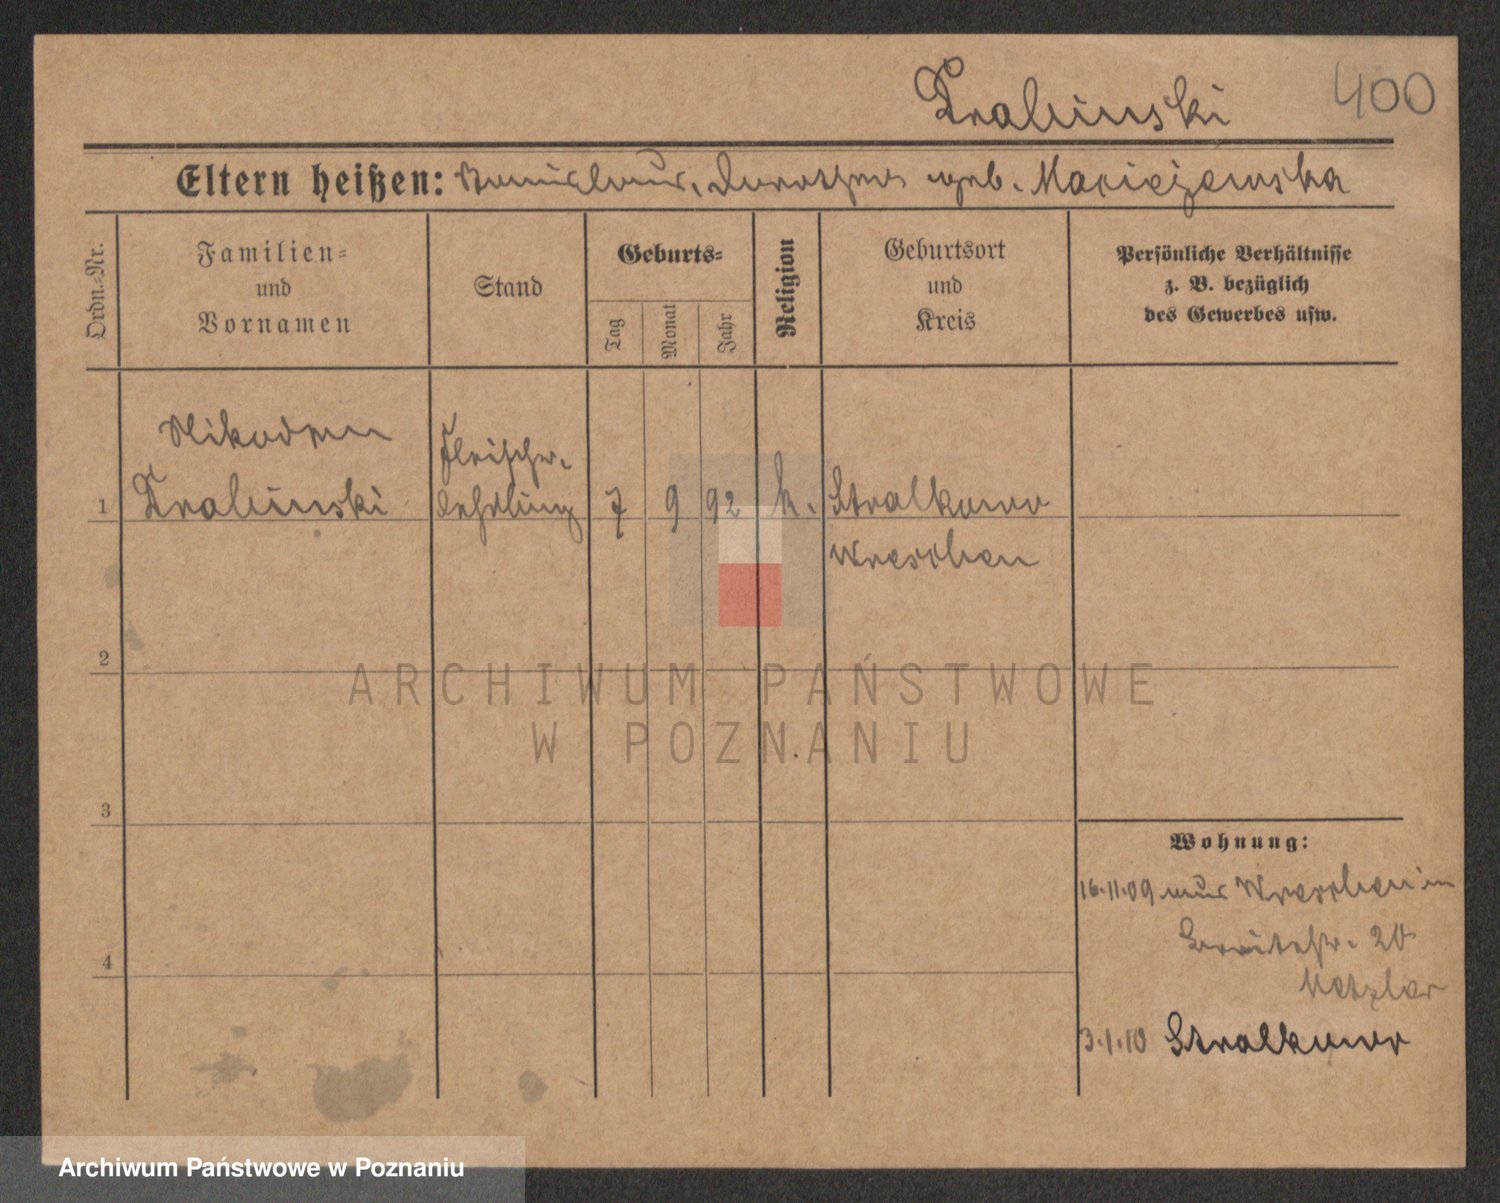 Drabinski 400
Eltern heißen: Stanislaus, Dorothea geb. Maciejewska
Ordn.-Nr.
Familien=
und
Vornamen
Stand
Geburts=
Tag
Monat
Jahr
Religion
Geburtsort
und
Kreis
Persönliche Verhältnisse
z. B. bezüglich
des Gewerbes usw.
Nikodem
Fleischer-
1 Drabinski lehrling 7 9 92 k. Stralkowo
Wreschen
2
ARCHIWUM PAŃSTWOWE
W POZNANIU
3
Wohnung:
16.11.09 aus Wreschen in
20
4
Metzler
3.1.10 Stralkowo
Archiwum Państwowe w Poznaniu